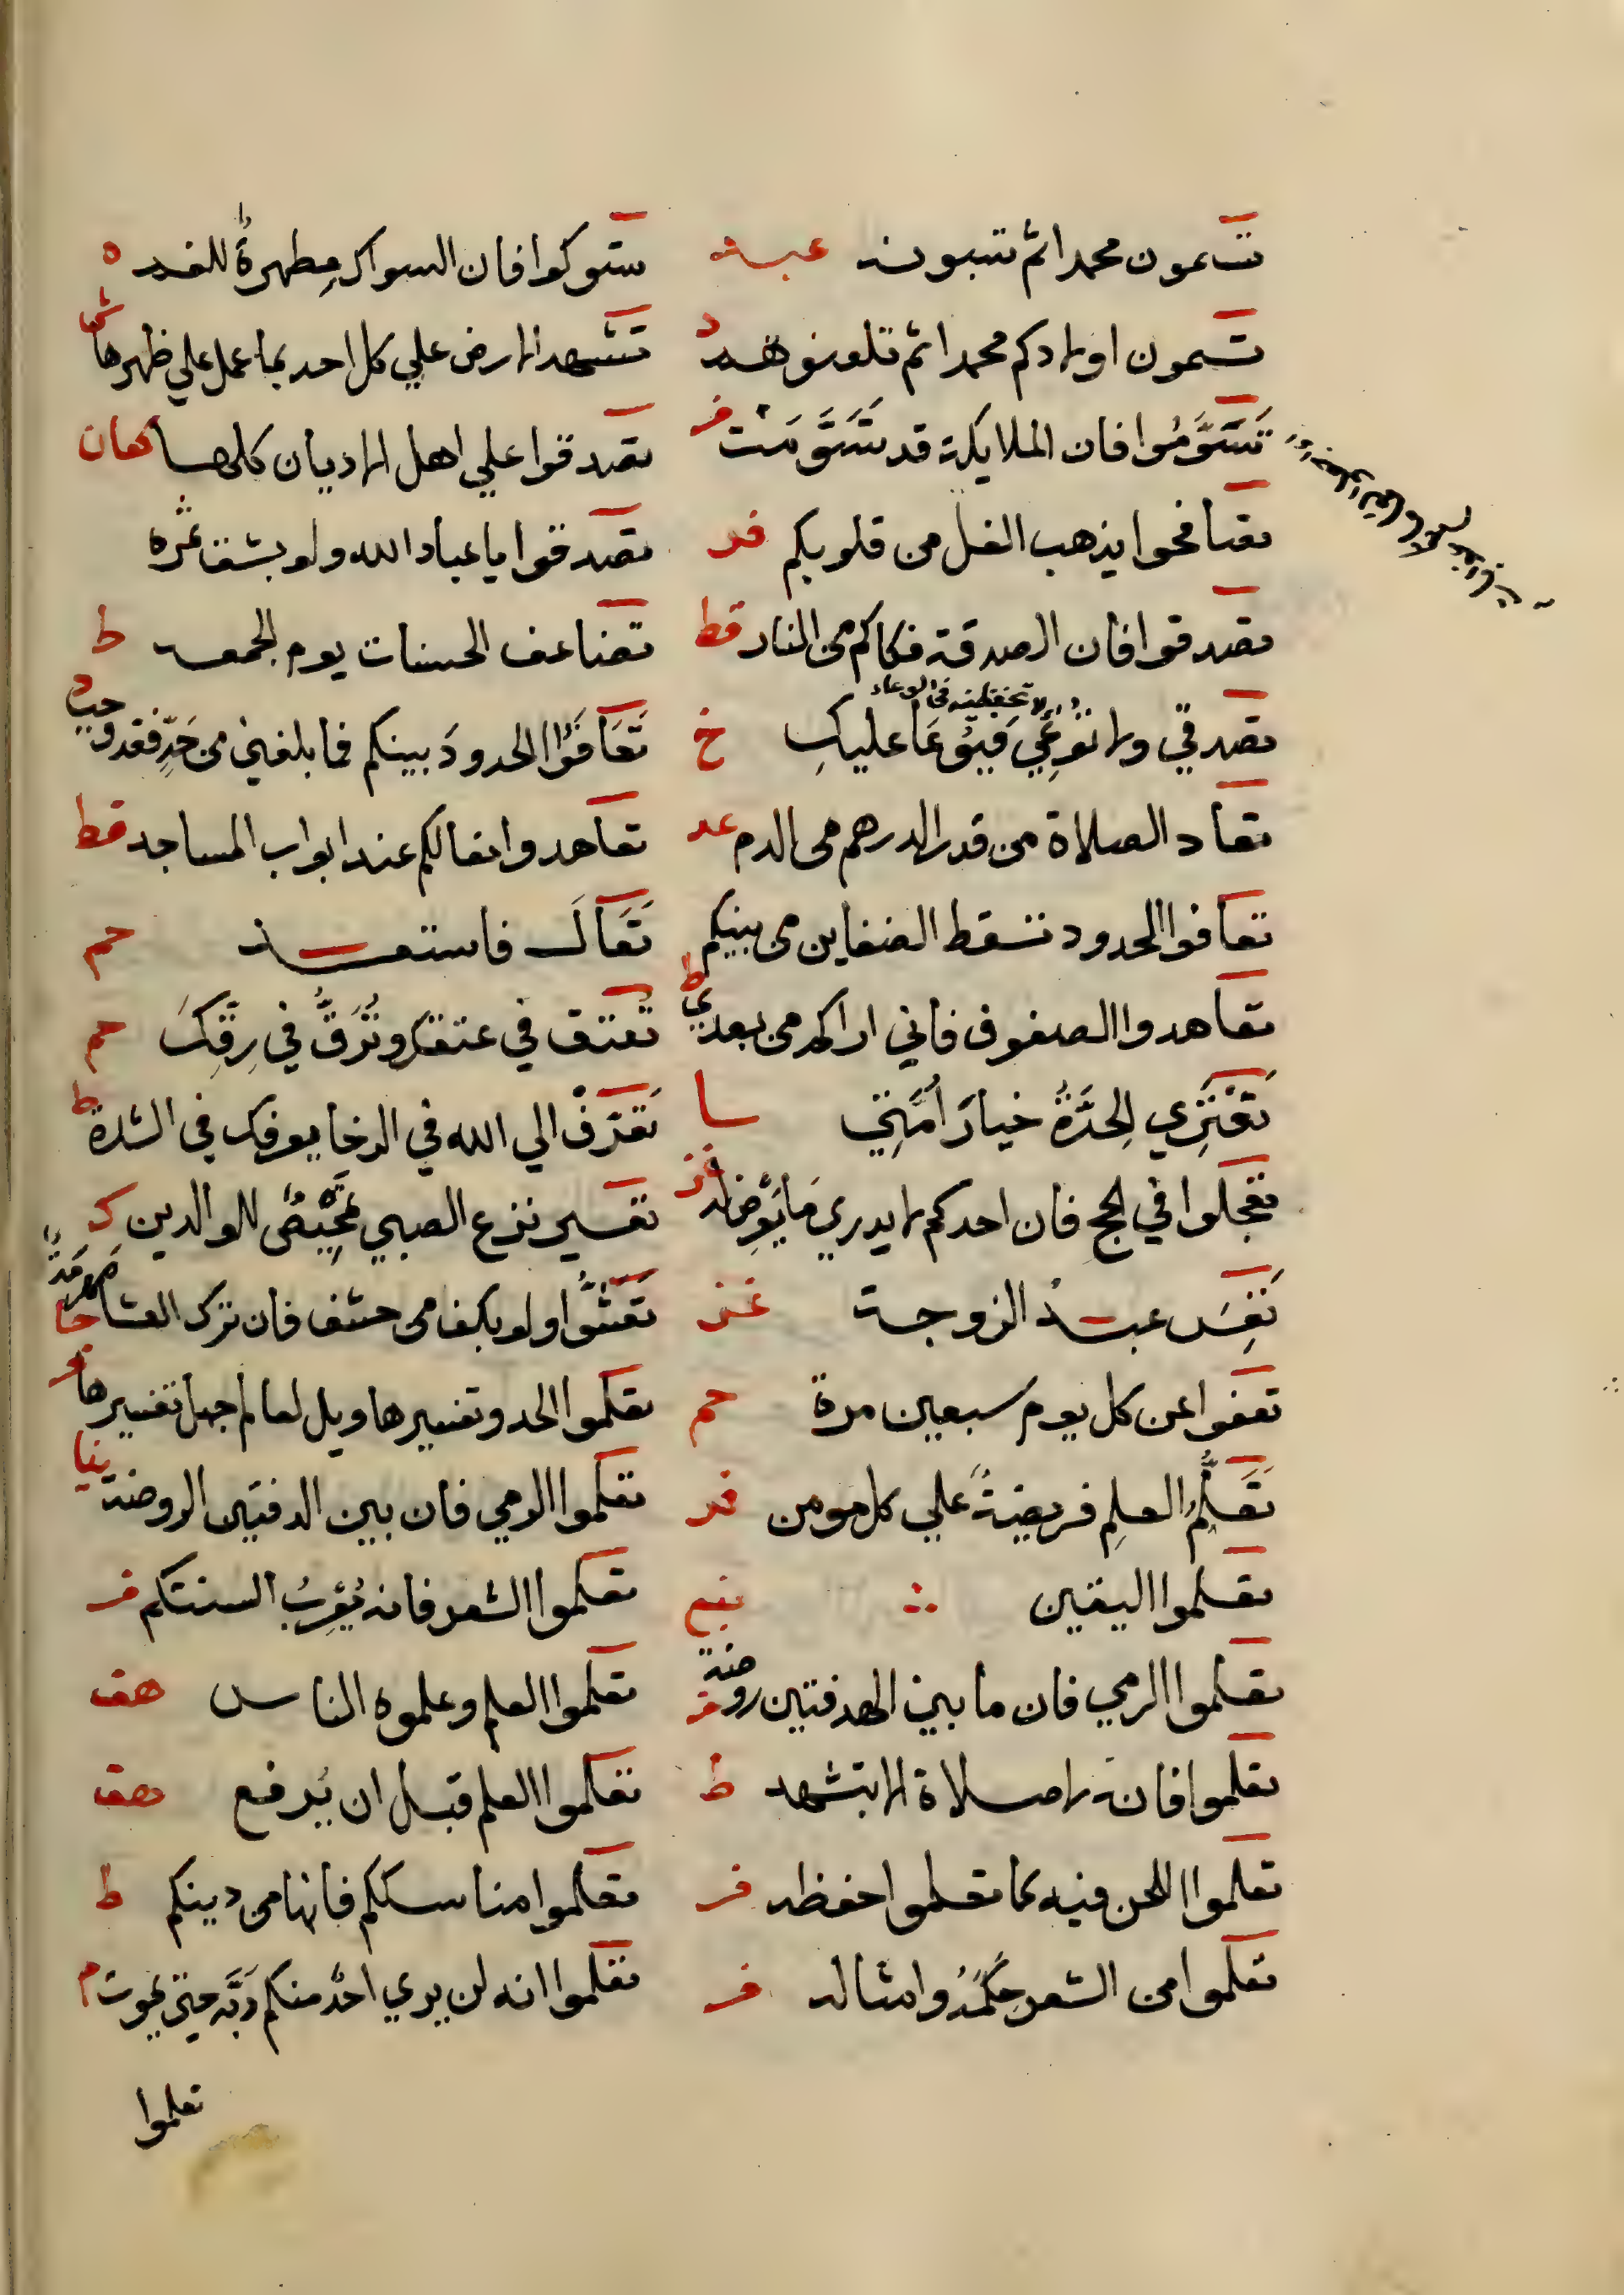 تسمون محمدا ثم تسبونه عبد
تسمون اولادكم محمدا ثم تلعنوهم د
تَسَوَّمُوا فان الملايكة قد تَسَوَّمَتْ ف
تصافحوا يذهب الغل من قلوبكم فر
تصدقوا فان الصدقة فكاكم من النار قط
لا تحفظينه في الوعاء
تصدقي ولا تُوعِي فيُوعَا عليكِ خ
تعاد الصلاة من قدر الدرهم من الدم عد
تعافوا الحدود تسقط الضغاين من بينكم
تعاهدوا الصفوف فاني اراكم من بعدي ط
تَعْتَرِي الحِدَّةُ خيارَ أُمَّتِي
تعجلوا في الحج فان احدكم لا يدري مَا يَعْرِضُ له
تَعِسَ عبدُ الزوجة
تعفوا عن كل يوم سبعين مرة حم
تَعَلُّمُ العلمِ فريضةٌ علي كل مومن فر
تعلموا اليقين نيع
تعلموا الرمي فان ما بين الهدفتين روضة ف
تعلموا فانه لا صلاة الا بتشهد ط
تعلموا اللحن فيه كما تعلموا حفظه فر
تعلموا من الشعر حِكَمَهُ وامثاله فر
تسوكوا فان السواك مِطهرةٌ للفم ه
تشهد الارض علي كل احد بما عمل علي ظهرها
تصدقوا علي اهل الاديان كلها
تصدقوا يا عباد الله ولو بشق تمرة
تضاعف الحسنات يوم الجمعه ط
تَعَافَوُا الحدودَ بينكم فما بلغني من حَدٍّ فقد وجب د
تعاهدوا نعالكم عند ابواب المساجد قط
تَعَالَ فاستعد حم
تُعتق في عتقك وتُرَقُّ في رِقِّكَ حم
تَعَرَّفْ الي الله في الرخا يعرفك في الشدة ط
تعسير نزع الصبي تمحيصٌ للوالدين ك
تَعَشَّوا ولو بكف من حشف فان ترك العشا مَهْرَمَةٌ
تعلموا الحد وتفسيرها ويل لعالم جهل تفسيرها
تعلموا الرمي فان بين الدفتين الروضة
تعلموا الشعر فانه يُعْرِبُ السنتكم ف
تعلموا العلم وعلموه الناس هق
تعلموا العلم قبل ان يُرفع هق
تعلموا مناسككم فانها من دينكم ط
تعلموا انه لن يري احدٌ منكم رَبَّه حتي يموت م
تعلموا